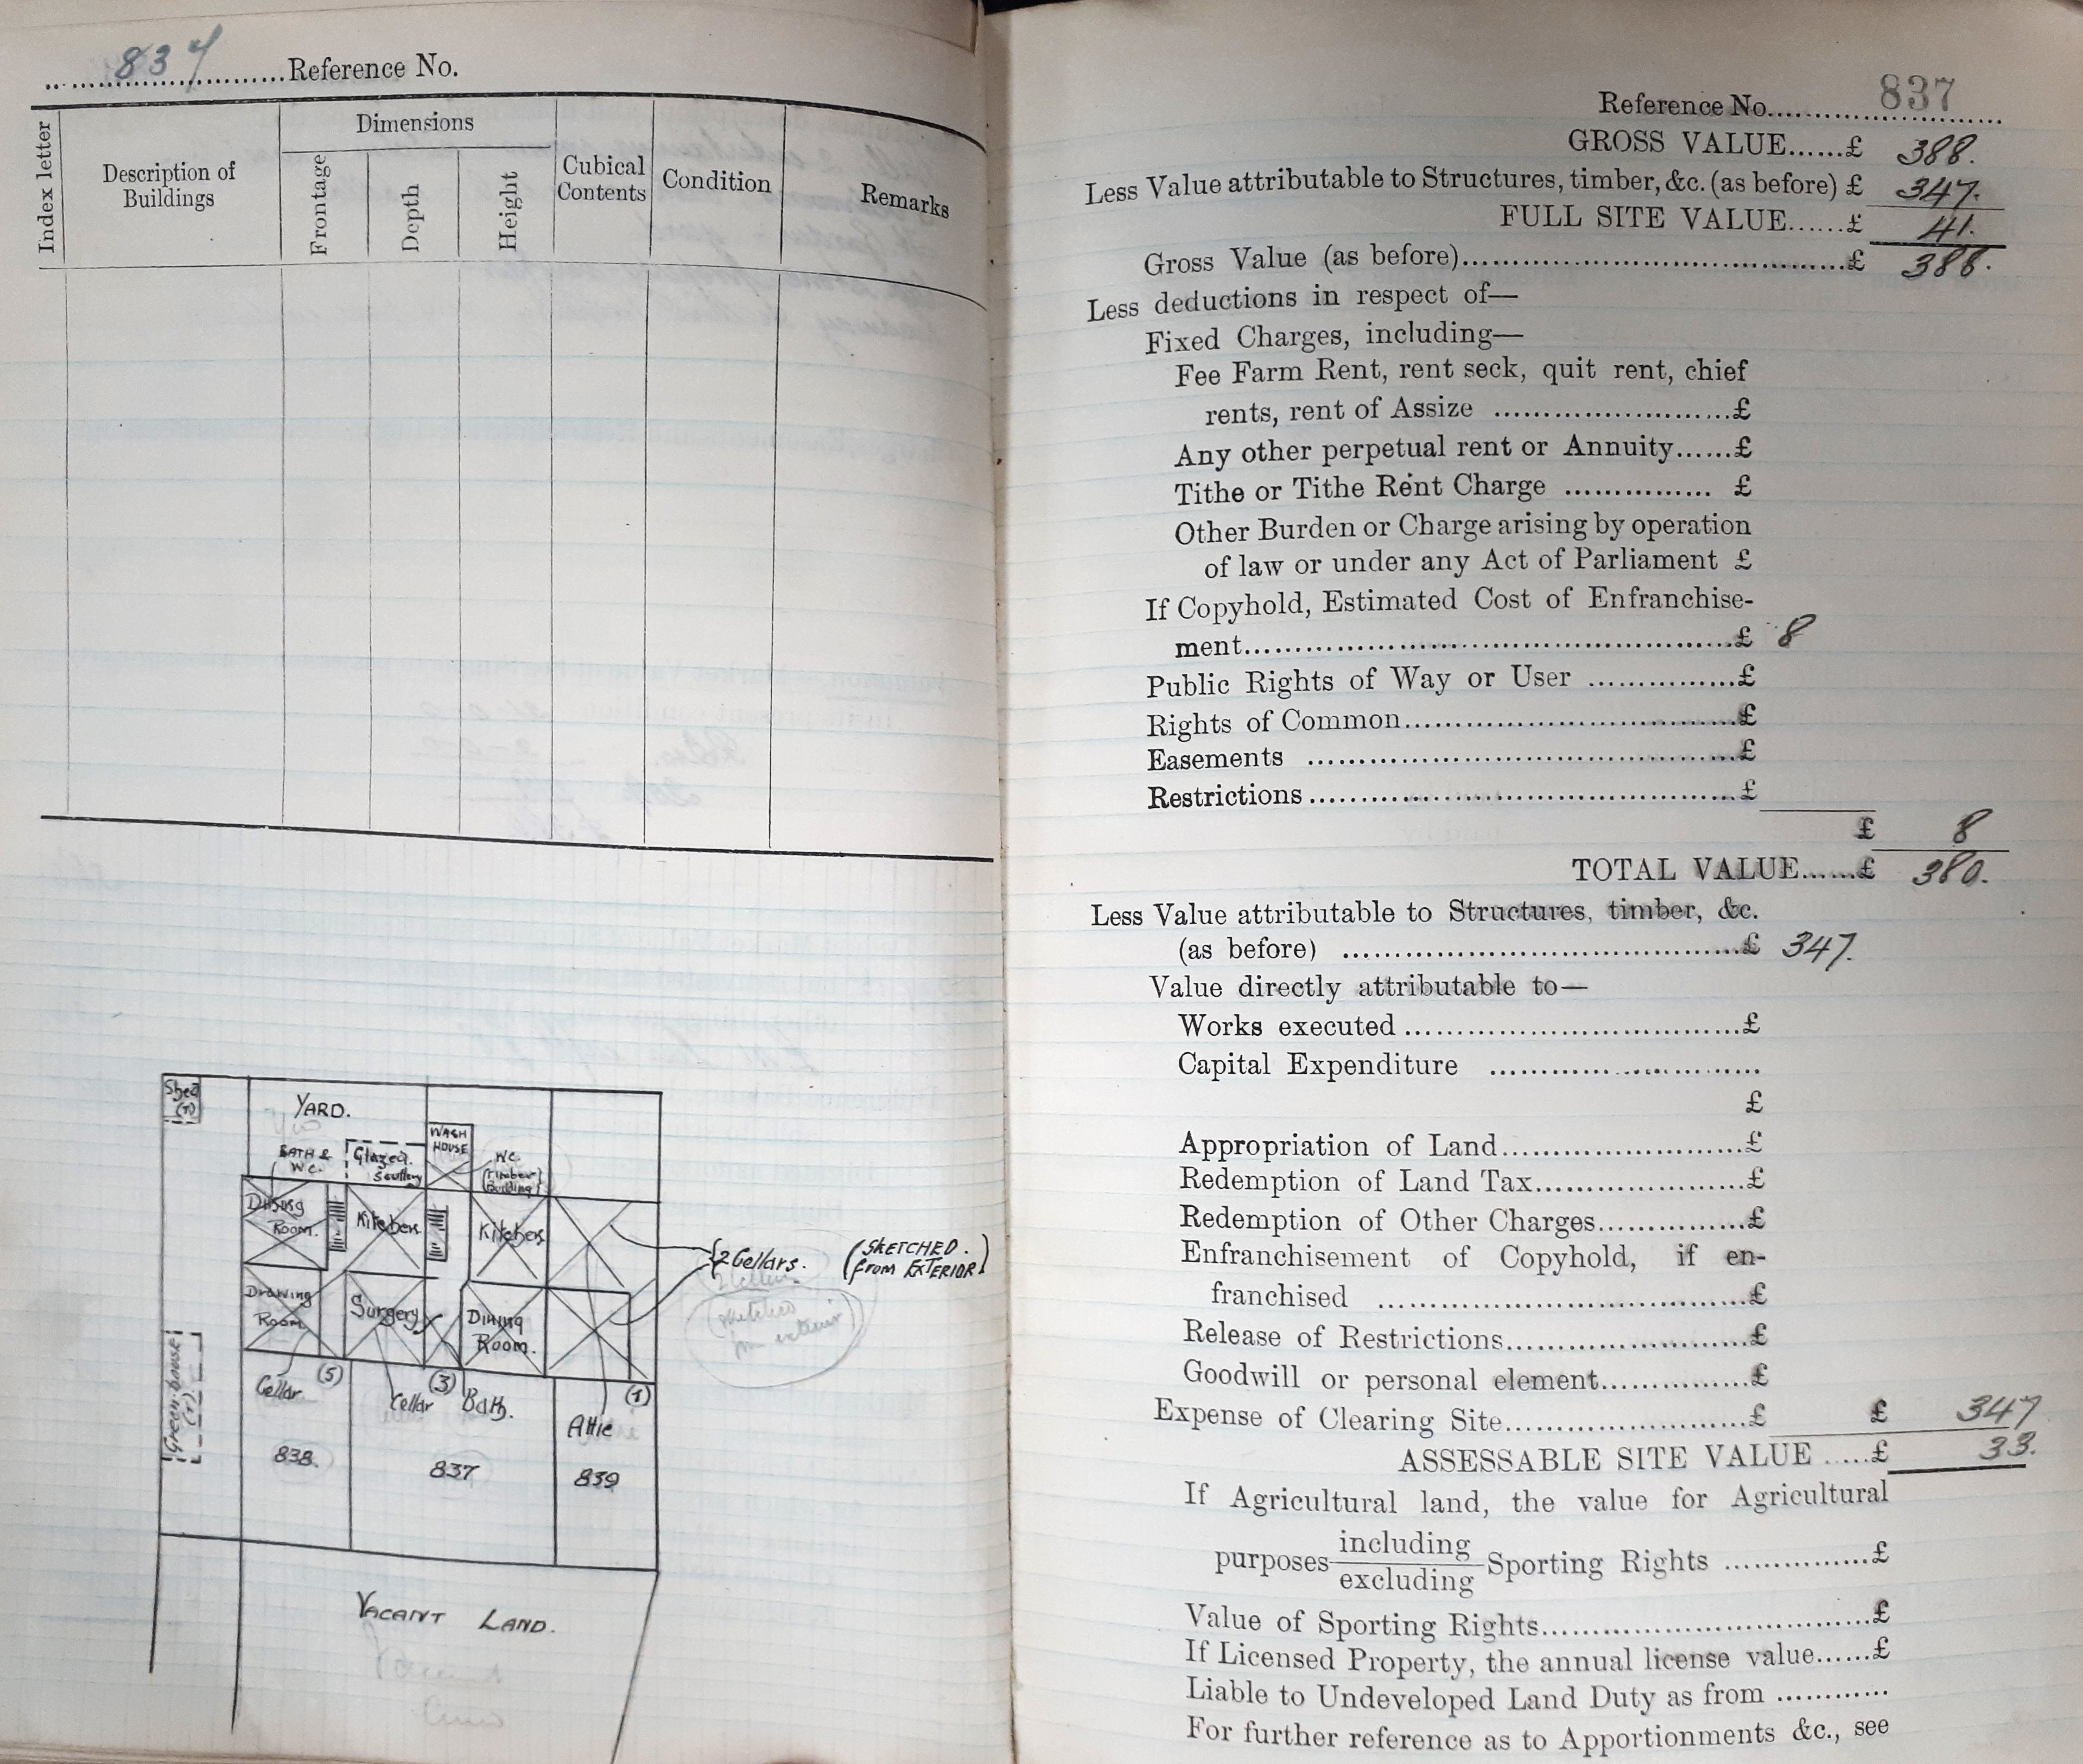 837 Reference No.
Index letter
Description of
Buildings
Dimensions
Frontage
Depth
Height
Cubical
Contents
Condition
Remarks
Shed
(T)
YARD.
BATH &
W.C.
Glazed.
Scullery
WASH
HOUSE
W.C.
(Timber
Building)
Dining
Room.
Kitchen
Kitchen
{2 Cellars.
(SKETCHED.
from EXTERIOR)
2 Cellars
(sketched
from exterior)
Drawing
Room
Surgery
Dining
Room.
Green-house
(T)
Cellar
(5)
Cellar
(3)
Bath.
Attic
(1)
838.
837
839
VACANT LAND.
Vacant
Land
Reference No. 837
GROSS VALUE......£ 388.
Less Value attributable to Structures, timber, &c. (as before) £ 347.
FULL SITE VALUE......£ 41.
Gross Value (as before)......£ 388.
Less deductions in respect of—
Fixed Charges, including—
Fee Farm Rent, rent seck, quit rent, chief
rents, rent of Assize ......£
Any other perpetual rent or Annuity......£
Tithe or Tithe Rent Charge ...... £
Other Burden or Charge arising by operation
of law or under any Act of Parliament £
If Copyhold, Estimated Cost of Enfranchise-
ment......£ 8
Public Rights of Way or User ......£
Rights of Common......£
Easements ......£
Restrictions......£
£ 8
TOTAL VALUE......£ 380.
Less Value attributable to Structures, timber, &c.
(as before) ......£ 347.
Value directly attributable to—
Works executed ......£
Capital Expenditure ......
£
Appropriation of Land......£
Redemption of Land Tax......£
Redemption of Other Charges......£
Enfranchisement of Copyhold, if en-
franchised ......£
Release of Restrictions......£
Goodwill or personal element......£
Expense of Clearing Site......£ £ 347
ASSESSABLE SITE VALUE .....£ 33.
If Agricultural land, the value for Agricultural
purposes including
excluding Sporting Rights ......£
Value of Sporting Rights......£
If Licensed Property, the annual license value......£
Liable to Undeveloped Land Duty as from ......
For further reference as to Apportionments &c., see